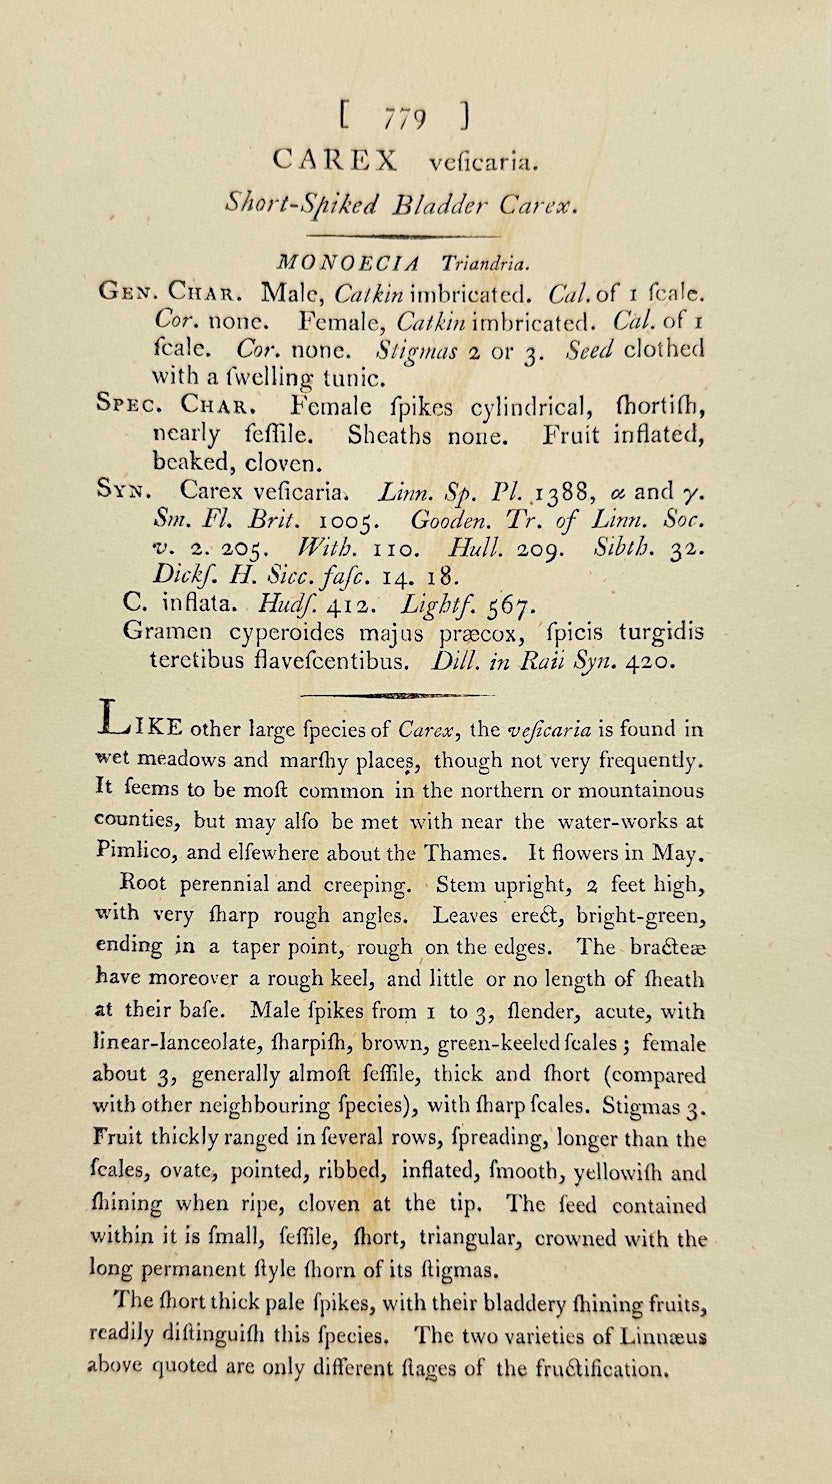 [ 779 ]
CAREX veſicaria.
Short-Spiked Bladder Carex.
MONOECIA Triandria.
GEN. CHAR. Male, Catkin imbricated. Cal. of 1 ſcale.
Cor. none. Female, Catkin imbricated. Cal. of 1
ſcale. Cor. none. Stigmas 2 or 3. Seed clothed
with a ſwelling tunic.
SPEC. CHAR. Female ſpikes cylindrical, ſhortiſh,
nearly ſeſſile. Sheaths none. Fruit inflated,
beaked, cloven.
SYN. Carex veſicaria. Linn. Sp. Pl. 1388, α and γ.
Sm. Fl. Brit. 1005. Gooden. Tr. of Linn. Soc.
v. 2. 205. With. 110. Hull. 209. Sibth. 32.
Dickſ. H. Sicc. faſc. 14. 18.
C. inflata. Hudſ. 412. Lightf. 567.
Gramen cyperoides majus præcox, ſpicis turgidis
teretibus flaveſcentibus. Dill. in Raii Syn. 420.
LIKE other large ſpecies of Carex, the veſicaria is found in
wet meadows and marſhy places, though not very frequently.
It ſeems to be moſt common in the northern or mountainous
counties, but may alſo be met with near the water-works at
Pimlico, and elſewhere about the Thames. It flowers in May.
Root perennial and creeping. Stem upright, 2 feet high,
with very ſharp rough angles. Leaves erect, bright-green,
ending in a taper point, rough on the edges. The bracteæ
have moreover a rough keel, and little or no length of ſheath
at their baſe. Male ſpikes from 1 to 3, ſlender, acute, with
linear-lanceolate, ſharpiſh, brown, green-keeled ſcales ; female
about 3, generally almoſt ſeſſile, thick and ſhort (compared
with other neighbouring ſpecies), with ſharp ſcales. Stigmas 3.
Fruit thickly ranged in ſeveral rows, ſpreading, longer than the
ſcales, ovate, pointed, ribbed, inflated, ſmooth, yellowiſh and
ſhining when ripe, cloven at the tip. The ſeed contained
within it is ſmall, ſeſſile, ſhort, triangular, crowned with the
long permanent ſtyle ſhorn of its ſtigmas.
The ſhort thick pale ſpikes, with their bladdery ſhining fruits,
readily diſtinguiſh this ſpecies. The two varieties of Linnæus
above quoted are only different ſtages of the fructification.